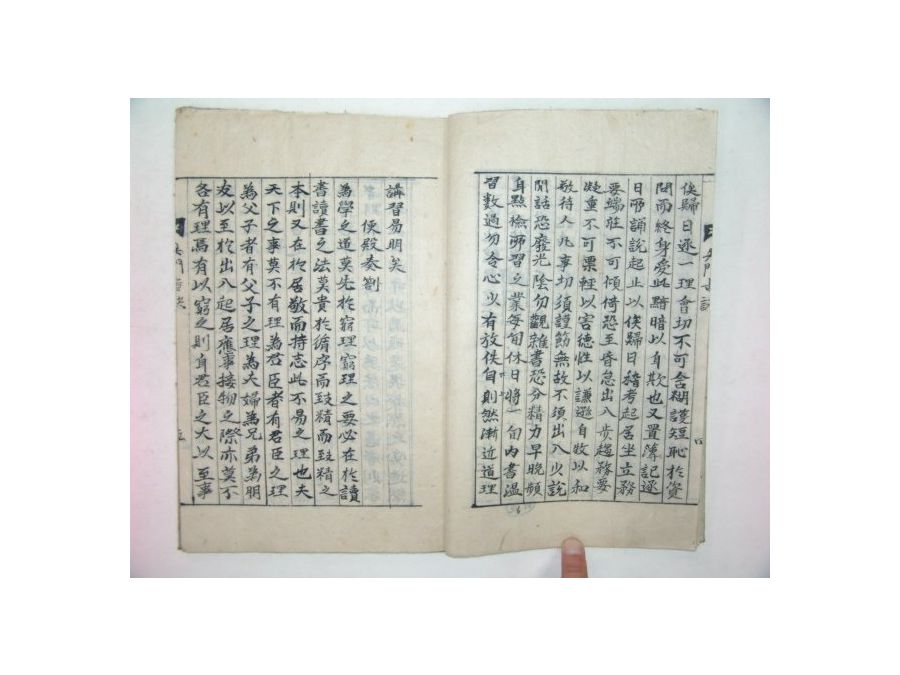 俟歸日逐一理會切不可含糊護短恥於資
問而終身受此黯暗以自欺也又置簿記逐
日所誦說起止以俟歸日稽考起居坐立務
要端莊不可傾倚恐至昏怠出入步趨務要
凝重不可票輕以害德性以謙遜自牧以和
敬待人凡事切須謹飭無故不須出入少說
閒話恐廢光陰勿觀雜書恐分精力早晚頻
自點檢所習之業每旬休日將一旬內書溫
習數過勿令心少有放佚自則然漸近道理
四
講習易明矣
便殿奏劄
為學之道莫先於窮理窮理之要必在於讀
書讀書之法莫貴於循序而致精而致精之
本則又在於居敬而持志此不易之理也夫
天下之事莫不有理為君臣者有君臣之理
為父子者有父子之理為夫婦為兄弟為朋
友以至於出入起居應事接物之際亦莫不
各有理焉有以窮之則自君臣之大以至事